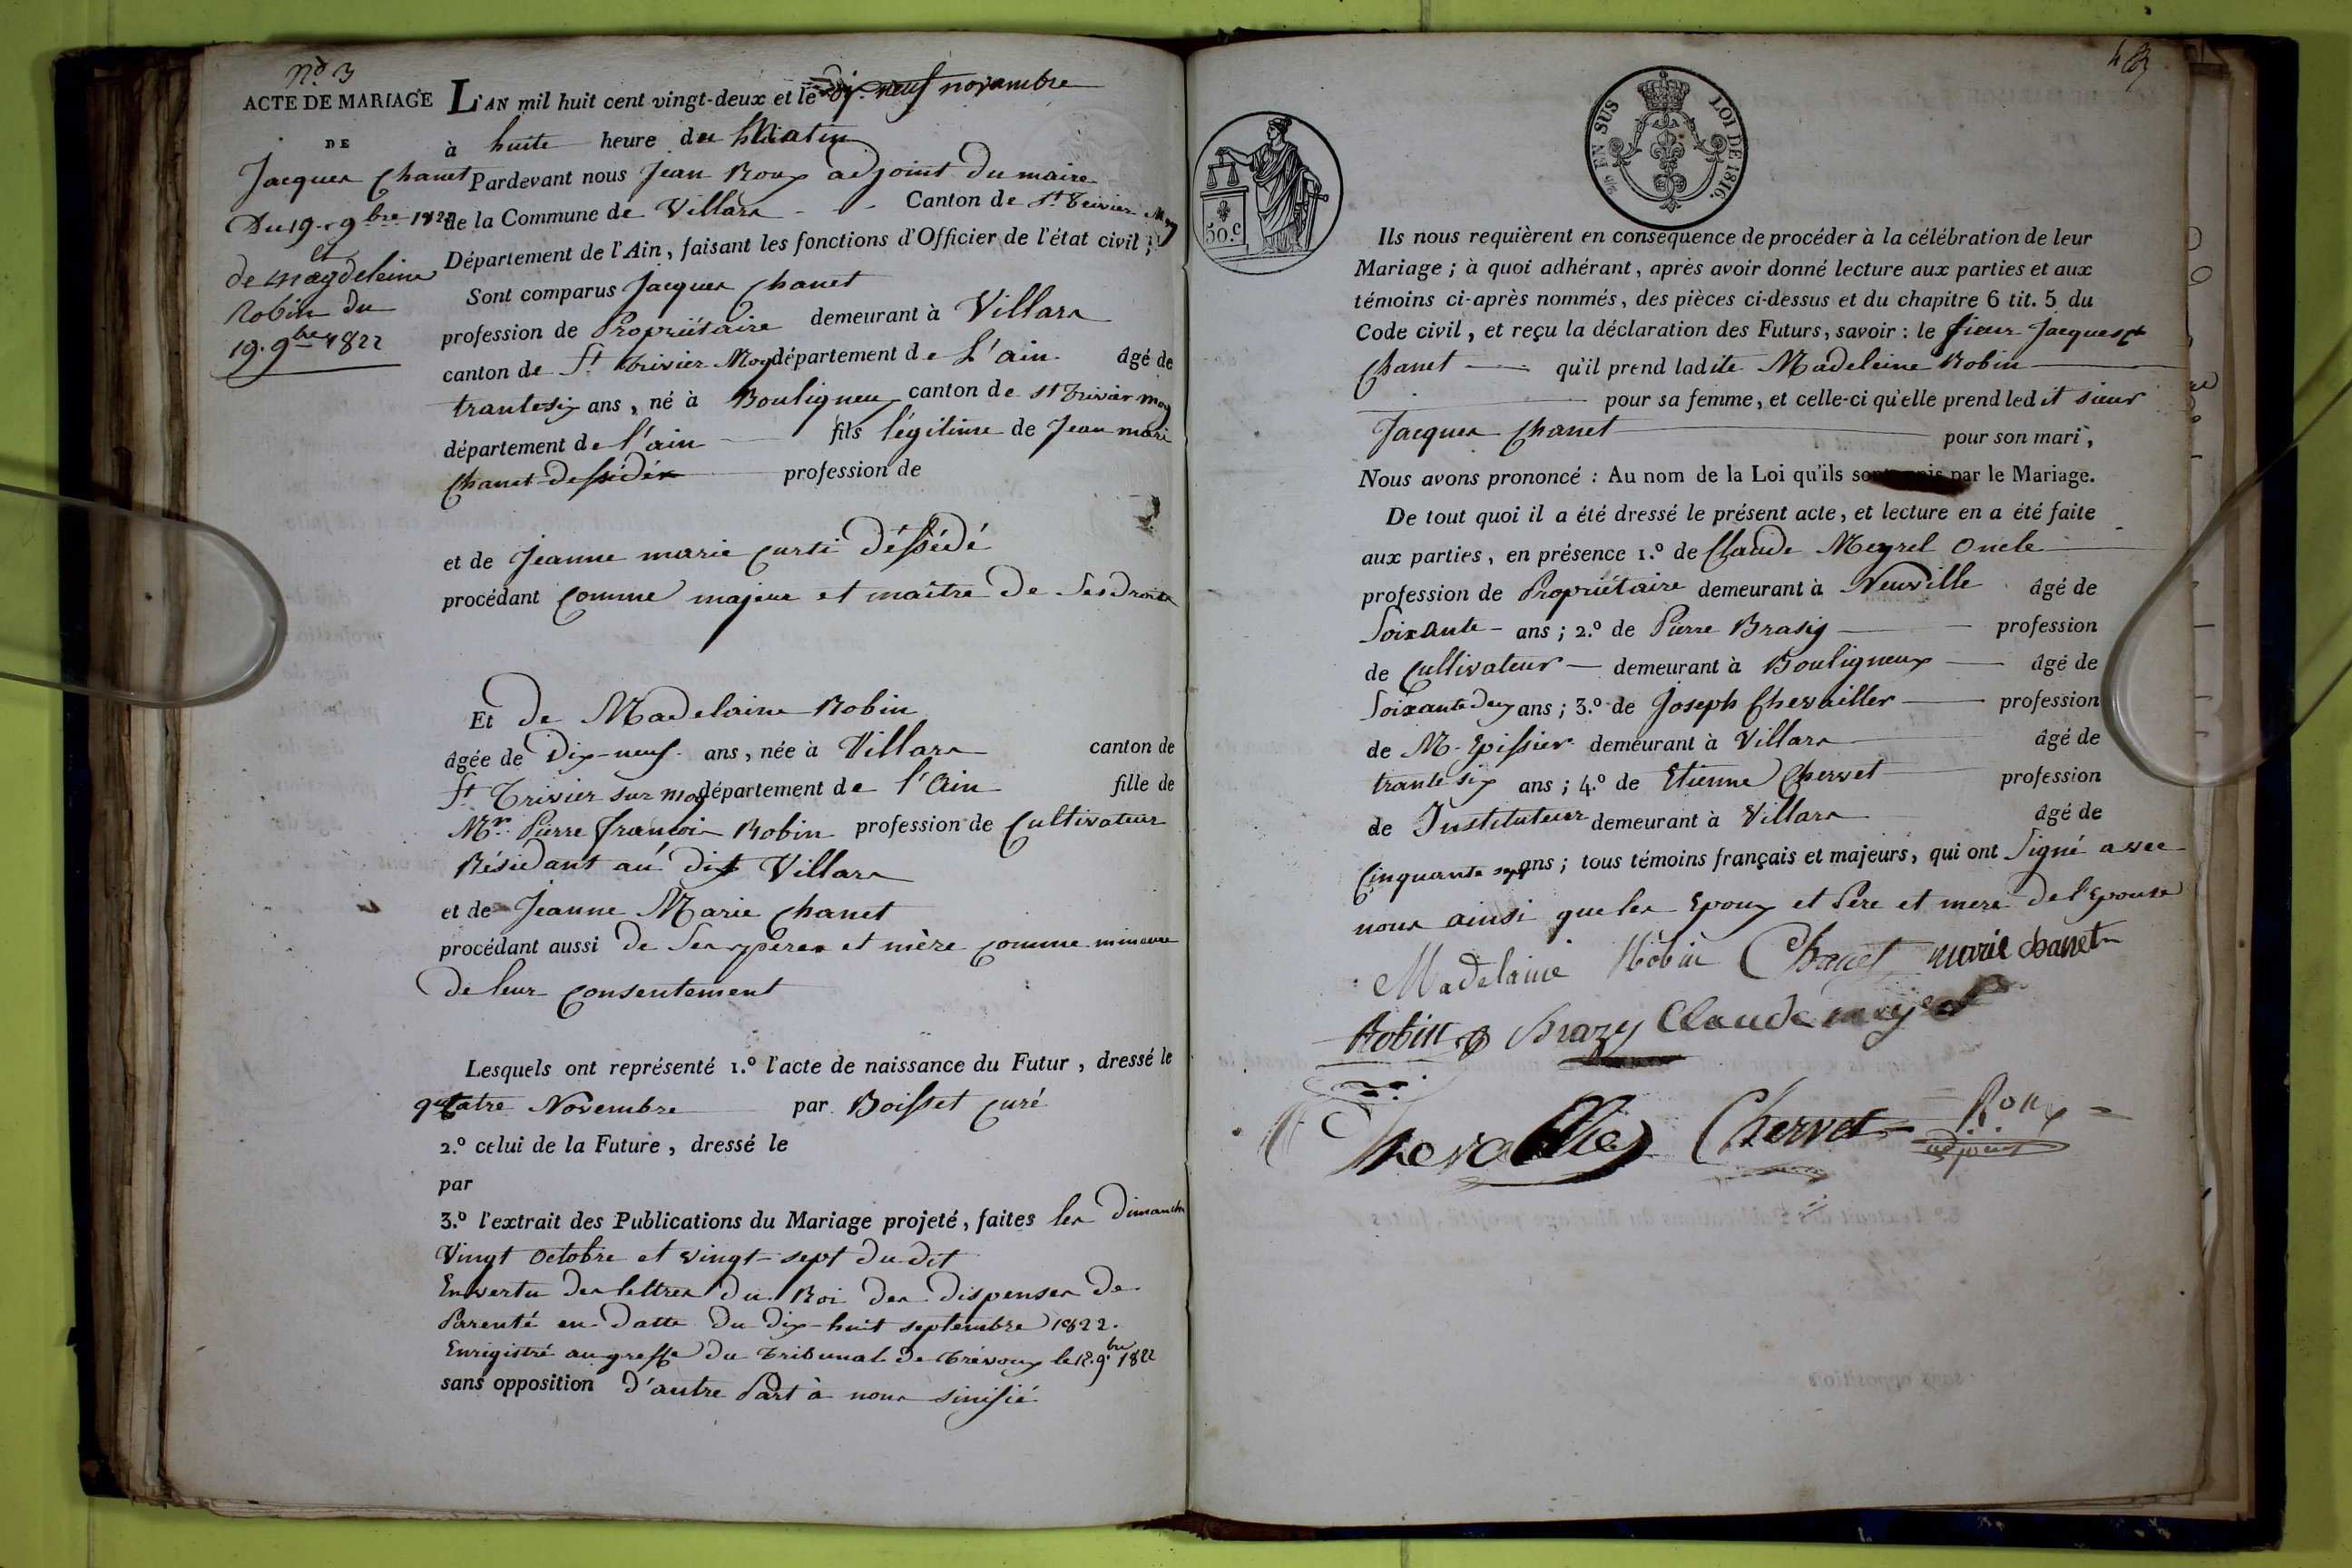 N.o 3
ACTE DE MARIAGE
DE
Jacques Chanet
Du 19. 9bre 1822
et
de magdeleine
Robin du
19. 9bre 1822
L'AN mil huit cent vingt-deux et le dix-neuf novambre
à huite heure du Matin
Pardevant nous Jean Roux adjoint du maire
de la Commune de Villars - - Canton de St Trivier Moy
Département de l'Ain, faisant les fonctions d'Officier de l'état civil ;
Sont comparus Jacques Chanet
profession de Propriétaire demeurant à Villars
canton de St Trivier Moy département de L'ain âgé de
trantesix ans, né à Bouligneux canton de St Trivier moy
département de l'ain fils légitime de Jean mari
Chanet dessédés profession de
et de Jeanne marie Curti déssédé
procédant Comme majeur et maitre de ses droits
Et de Madelaine Robin
âgée de Dix-neuf ans, née à Villars canton de
St Trivier sur moy département de l'Ain fille de
Mr. Pierre francois Robin profession de Cultivateur
Résidant au dit Villars
et de Jeanne Marie Chanet
procédant aussi de Ses pères et mère comme mineure
de leur consentement
Lesquels ont représenté 1.º l'acte de naissance du Futur, dressé le
quatre Novembre par Boisset curé
2.º celui de la Future, dressé le
par
3.º l'extrait des Publications du Mariage projeté, faites les dimanche
Vingt Octobre et vingt-sept du dit
En vertu des lettres du Roi des dispenses de
Parenté en datte du dix-huit septembre 1822.
Enrigistré au greffe du tribunal de trévoux le 12. 9bre 1822
sans opposition d'autre Part à nous sinifié
50.c
EN SUS
LOI DE 1816.
Ils nous requièrent en conséquence de procéder à la célébration de leur
Mariage ; à quoi adhérant, après avoir donné lecture aux parties et aux
témoins ci-après nommés, des pièces ci-dessus et du chapitre 6 tit. 5 du
Code civil, et reçu la déclaration des Futurs, savoir : le sieur Jacques
Chanet qu'il prend ladite Madeleine Robin
pour sa femme, et celle-ci qu'elle prend ledit sieur
Jacques Chanet pour son mari,
Nous avons prononcé : Au nom de la Loi qu'ils sont unis par le Mariage.
De tout quoi il a été dressé le présent acte, et lecture en a été faite
aux parties, en présence 1.º de Claude Meyrel Oncle
profession de Propriétaire demeurant à Neuville âgé de
Soixante - ans ; 2.º de Pierre Brasig profession
de Cultivateur demeurant à Bouligneux âgé de
Soixante deux ans ; 3.º de Joseph Chevailler profession
de M. Epissier demeurant à Villars âgé de
trante six ans ; 4.º de Etienne Chervet profession
de Instituteur demeurant à Villars âgé de
Cinquante sept ans ; tous témoins français et majeurs, qui ont Signé avec
nous ainsi que les Epoux et Père et mere de l'Epouse
Madelaine Robin Chanet marie chanet
Robin Brazy Claude meyrel
Chevallier Chervet Roux
adjoint